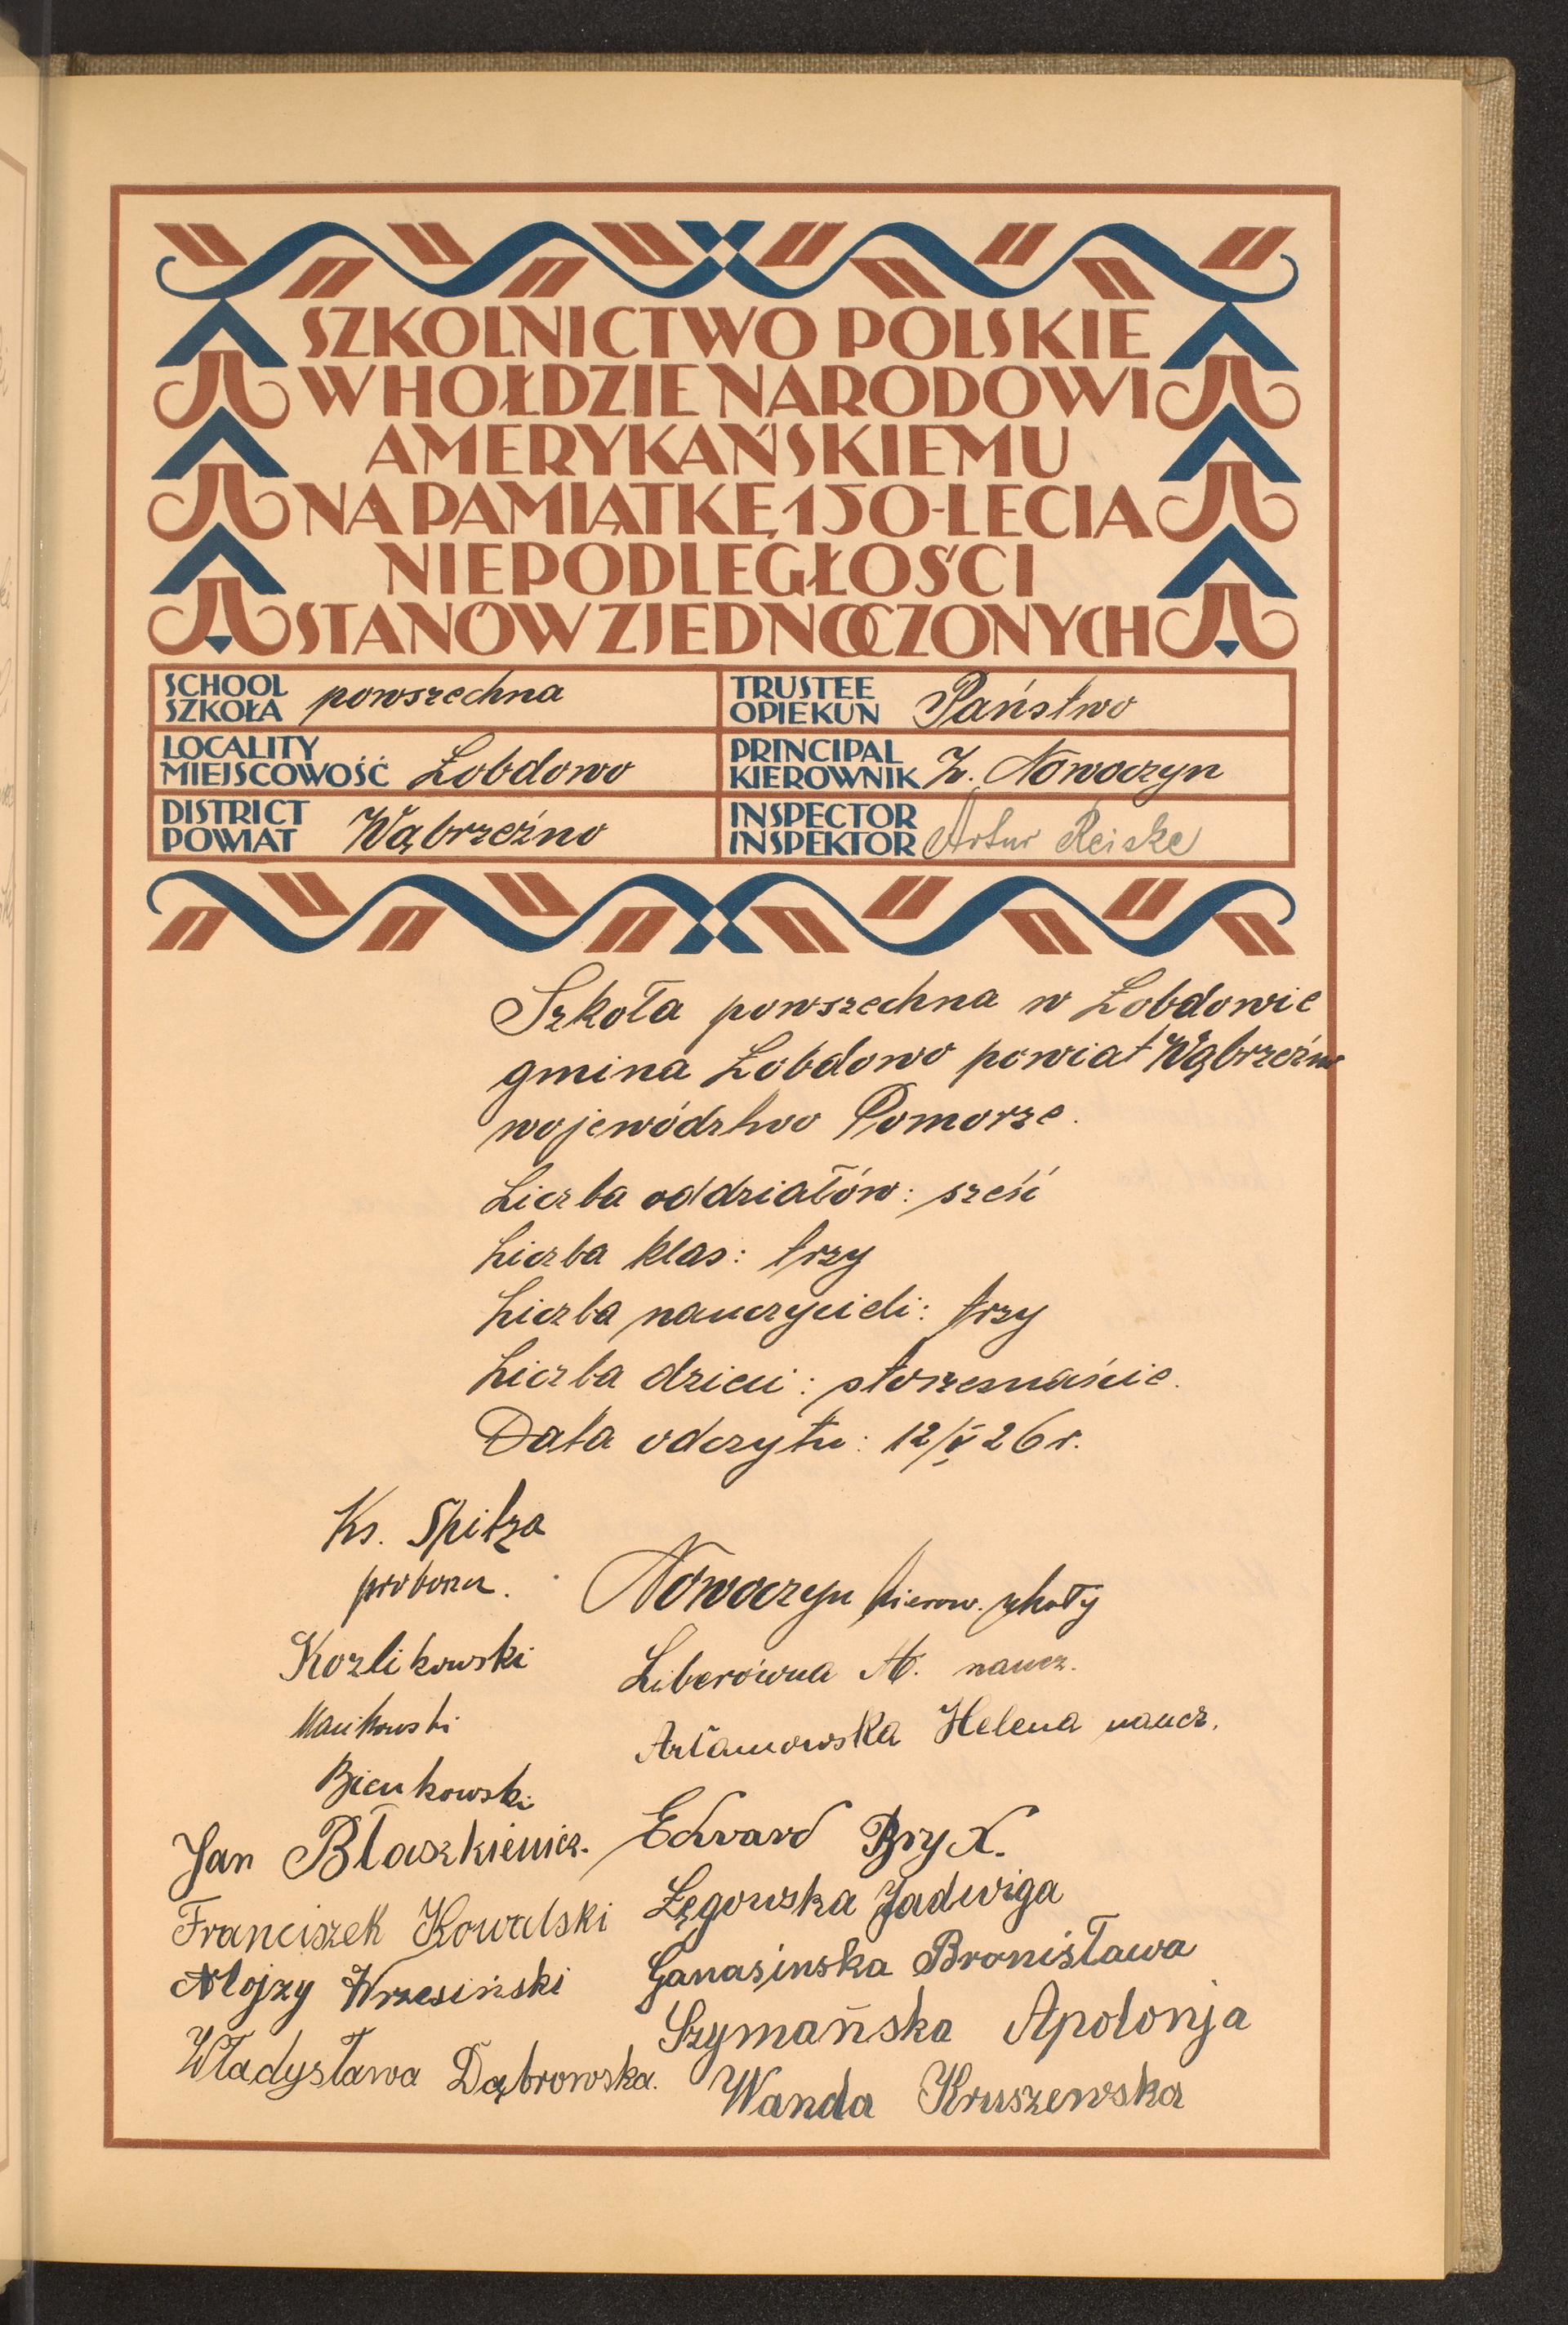 SZKOLNICTWO POLSKIE
W HOŁDZIE NARODOWI
AMERYKAŃSKIEMU
NA PAMIĄTKĘ 150-LECIA
NIEPODLEGŁOŚCI
STANÓW ZJEDNOCZONYCH
SCHOOL
SZKOŁA powszechna
TRUSTEE
OPIEKUN Państwo
LOCALITY
MIEJSCOWOŚĆ Łobdowo
PRINCIPAL
KIEROWNIK Nowoczyn
DISTRICT
POWIAT Wąbrzeźno
INSPECTOR
INSPEKTOR Artur Reiske
Szkoła powszechna w Łobdowie
gmina Łobdowo powiat Wąbrzeźno
województwo Pomorze.
Liczba oddziałów: sześć
Liczba klas: trzy
Liczba nauczycieli: trzy
Liczba dzieci: stoszesnaście.
Data odczytu: 12/V 26 r.
Ks. Spitza
probosz.
Nowoczyn kierow. szkoły
Kozlikowski
Liberówna M. naucz.
Manikowski
Artamowska Helena naucz.
Bienkowski
Jan Błaszkiewicz.
Edward Bryx.
Franciszek Kowalski
Łęgowska Jadwiga
Alojzy Wrzesiński
Ganasinska Bronisława
Szymańska Apolonja
Władysława Dąbrowska.
Wanda Kruszewska